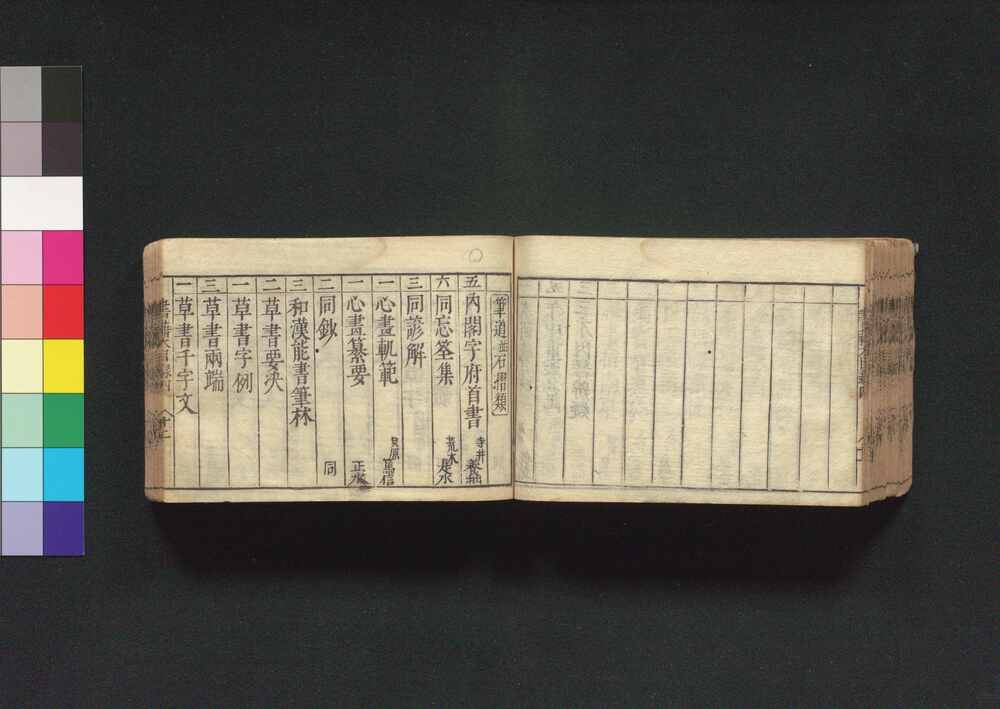 筆道並石摺類
五 内閣字府首書 寺井養拙
六 同忘筌集 荒木是水
三 同諺解
一 心畫軌範 貝原篤信
一 心畫纂要 正水
二 同鈔 同
三 和漢能書筆林
二 草書要决
一 草書字例
三 草書兩端
一 草書千字文